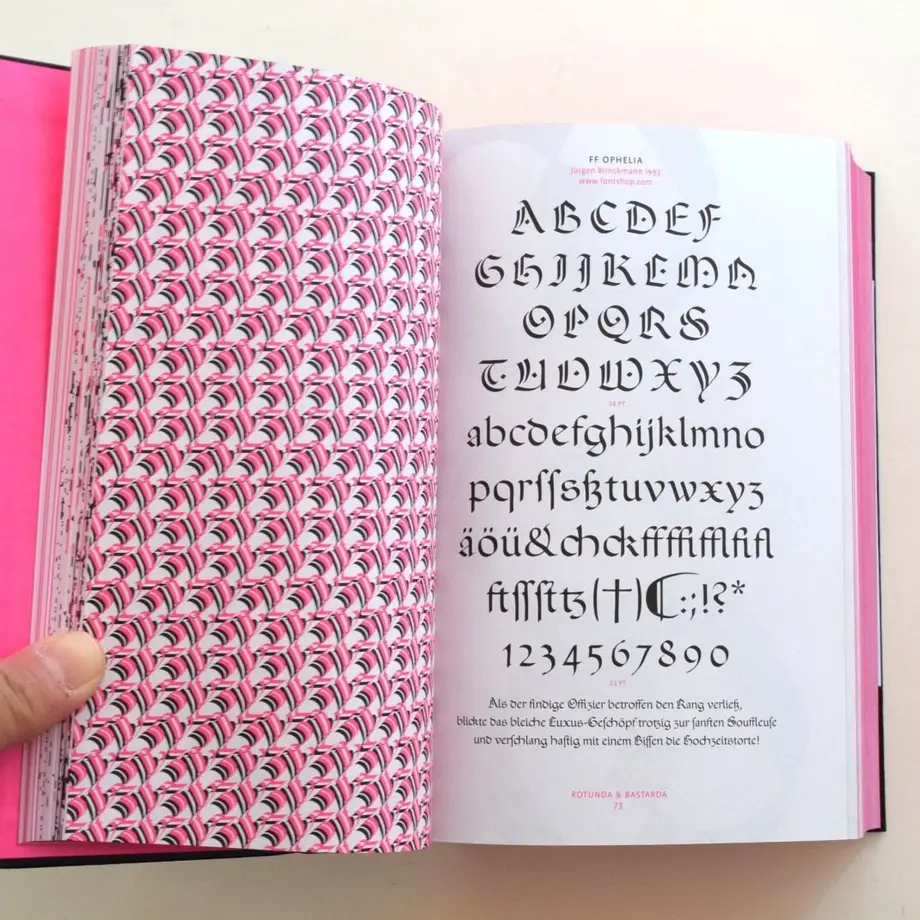 FF OPHELIA
Jürgen Brinckmann 1993
www.fontshop.com
A B C D E F
G H I J K L M N
O P Q R S
T U V W X Y Z
34 PT
abcdefghijklmno
pqrſſsßtuvwxyz
äöü&chckffffifflfifl
ftſſſttz(†)₠:;!?*
1234567890
13 PT
Als der findige Offizier betroffen den Rang verließ,
blickte das bleiche Luxus-Geſchöpf trotzig zur ſanften Souffleuſe
und verſchlang haſtig mit einem Biſſen die Hochzeitstorte!
ROTUNDA & BASTARDA
73